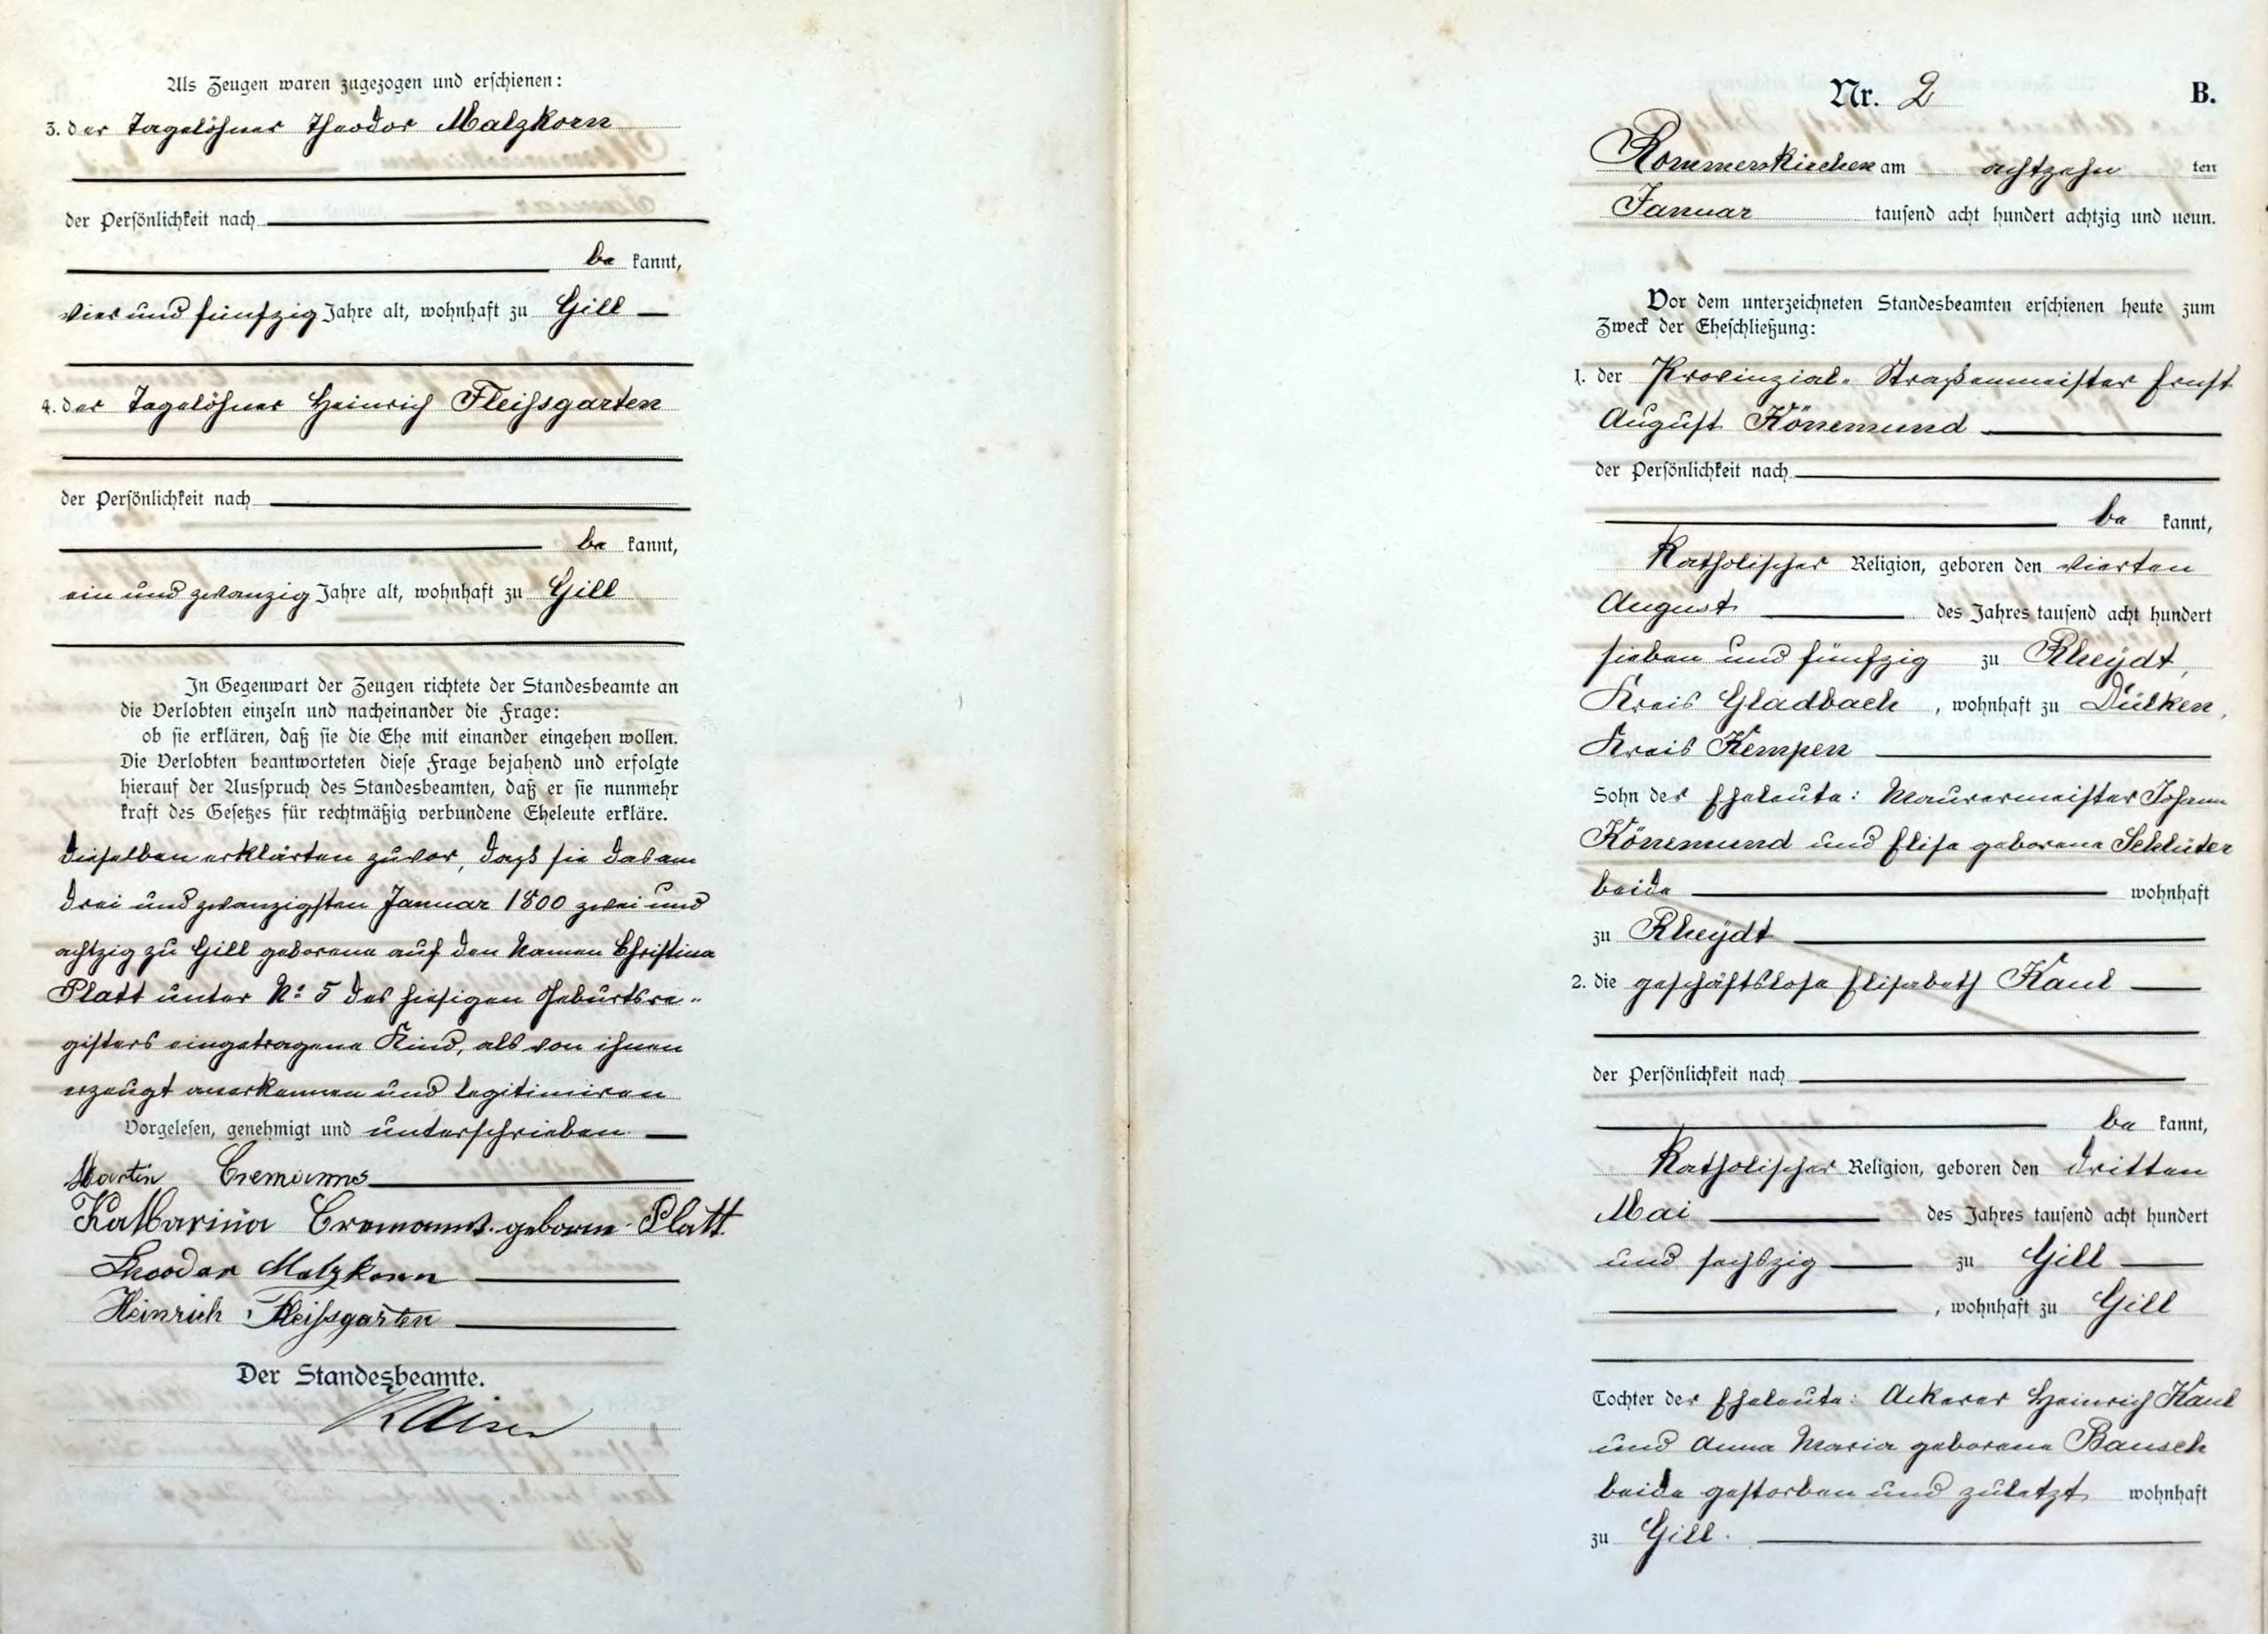 Als Zeugen waren zugezogen und erschienen:
3. der Tagelöhner Theodor Malzkorn
der Persönlichkeit nach
be kannt,
vier und fünfzig Jahre alt, wohnhaft zu Gill
4. der Tagelöhner Heinrich Fleissgarten
der Persönlichkeit nach
be kannt,
ein und zwanzig Jahre alt, wohnhaft zu Gill
In Gegenwart der Zeugen richtete der Standesbeamte an
die Verlobten einzeln und nacheinander die Frage:
ob sie erklären, daß sie die Ehe mit einander eingehen wollen.
Die Verlobten beantworteten diese Frage bejahend und erfolgte
hierauf der Ausspruch des Standesbeamten, daß er sie nunmehr
kraft des Gesetzes für rechtmäßig verbundene Eheleute erkläre.
Dieselben erklärten zuvor, daß sie das am
drei und zwanzigsten Januar 1800 zwei und
achtzig zu Gill geborene auf den Namen Christina
Platt unter No 5 des hiesigen Geburtsre-
gisters eingetragene Kind, als von ihnen
erzeugt anerkennen und legitimiren
Vorgelesen, genehmigt und unterschrieben
Martin Cremanns
Katharina Cremanns geboren Platt
Theodor Malzkorn
Heinrich Fleissgarten
Der Standesbeamte.
Kaiser
Nr. 2 B.
Rommerskirchen am achtzehn ten
Januar tausend acht hundert achtzig und neun.
Vor dem unterzeichneten Standesbeamten erschienen heute zum
Zweck der Eheschließung:
1. der Provinzial-Straßenmeister Ernst
August Könemund
der Persönlichkeit nach
be kannt,
Katholischer Religion, geboren den vierten
August des Jahres tausend acht hundert
sieben und fünfzig zu Rheydt,
Kreis Gladbach, wohnhaft zu Dülken,
Kreis Kempen
Sohn der Eheleute: Maurermeister Johann
Könemund und Elisa geborene Schlüter
beide wohnhaft
zu Rheydt
2. die geschäftslose Elisabeth Kaul
der Persönlichkeit nach
be kannt,
Katholischer Religion, geboren den dritten
Mai des Jahres tausend acht hundert
und sechszig zu Gill
, wohnhaft zu Gill
Tochter der Eheleute: Ackerer Heinrich Kaul
und Anna Maria geborene Bausch
beide gestorben und zuletzt wohnhaft
zu Gill.